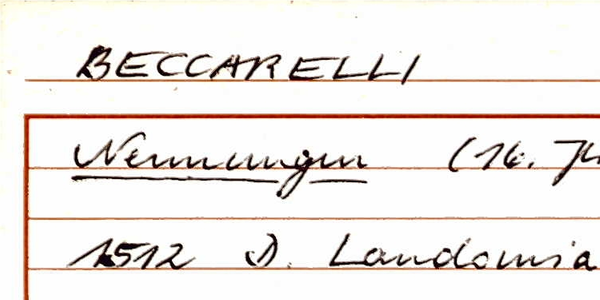 BECCARELLI
Nennungen (16. Jh
1512 D. Landomia